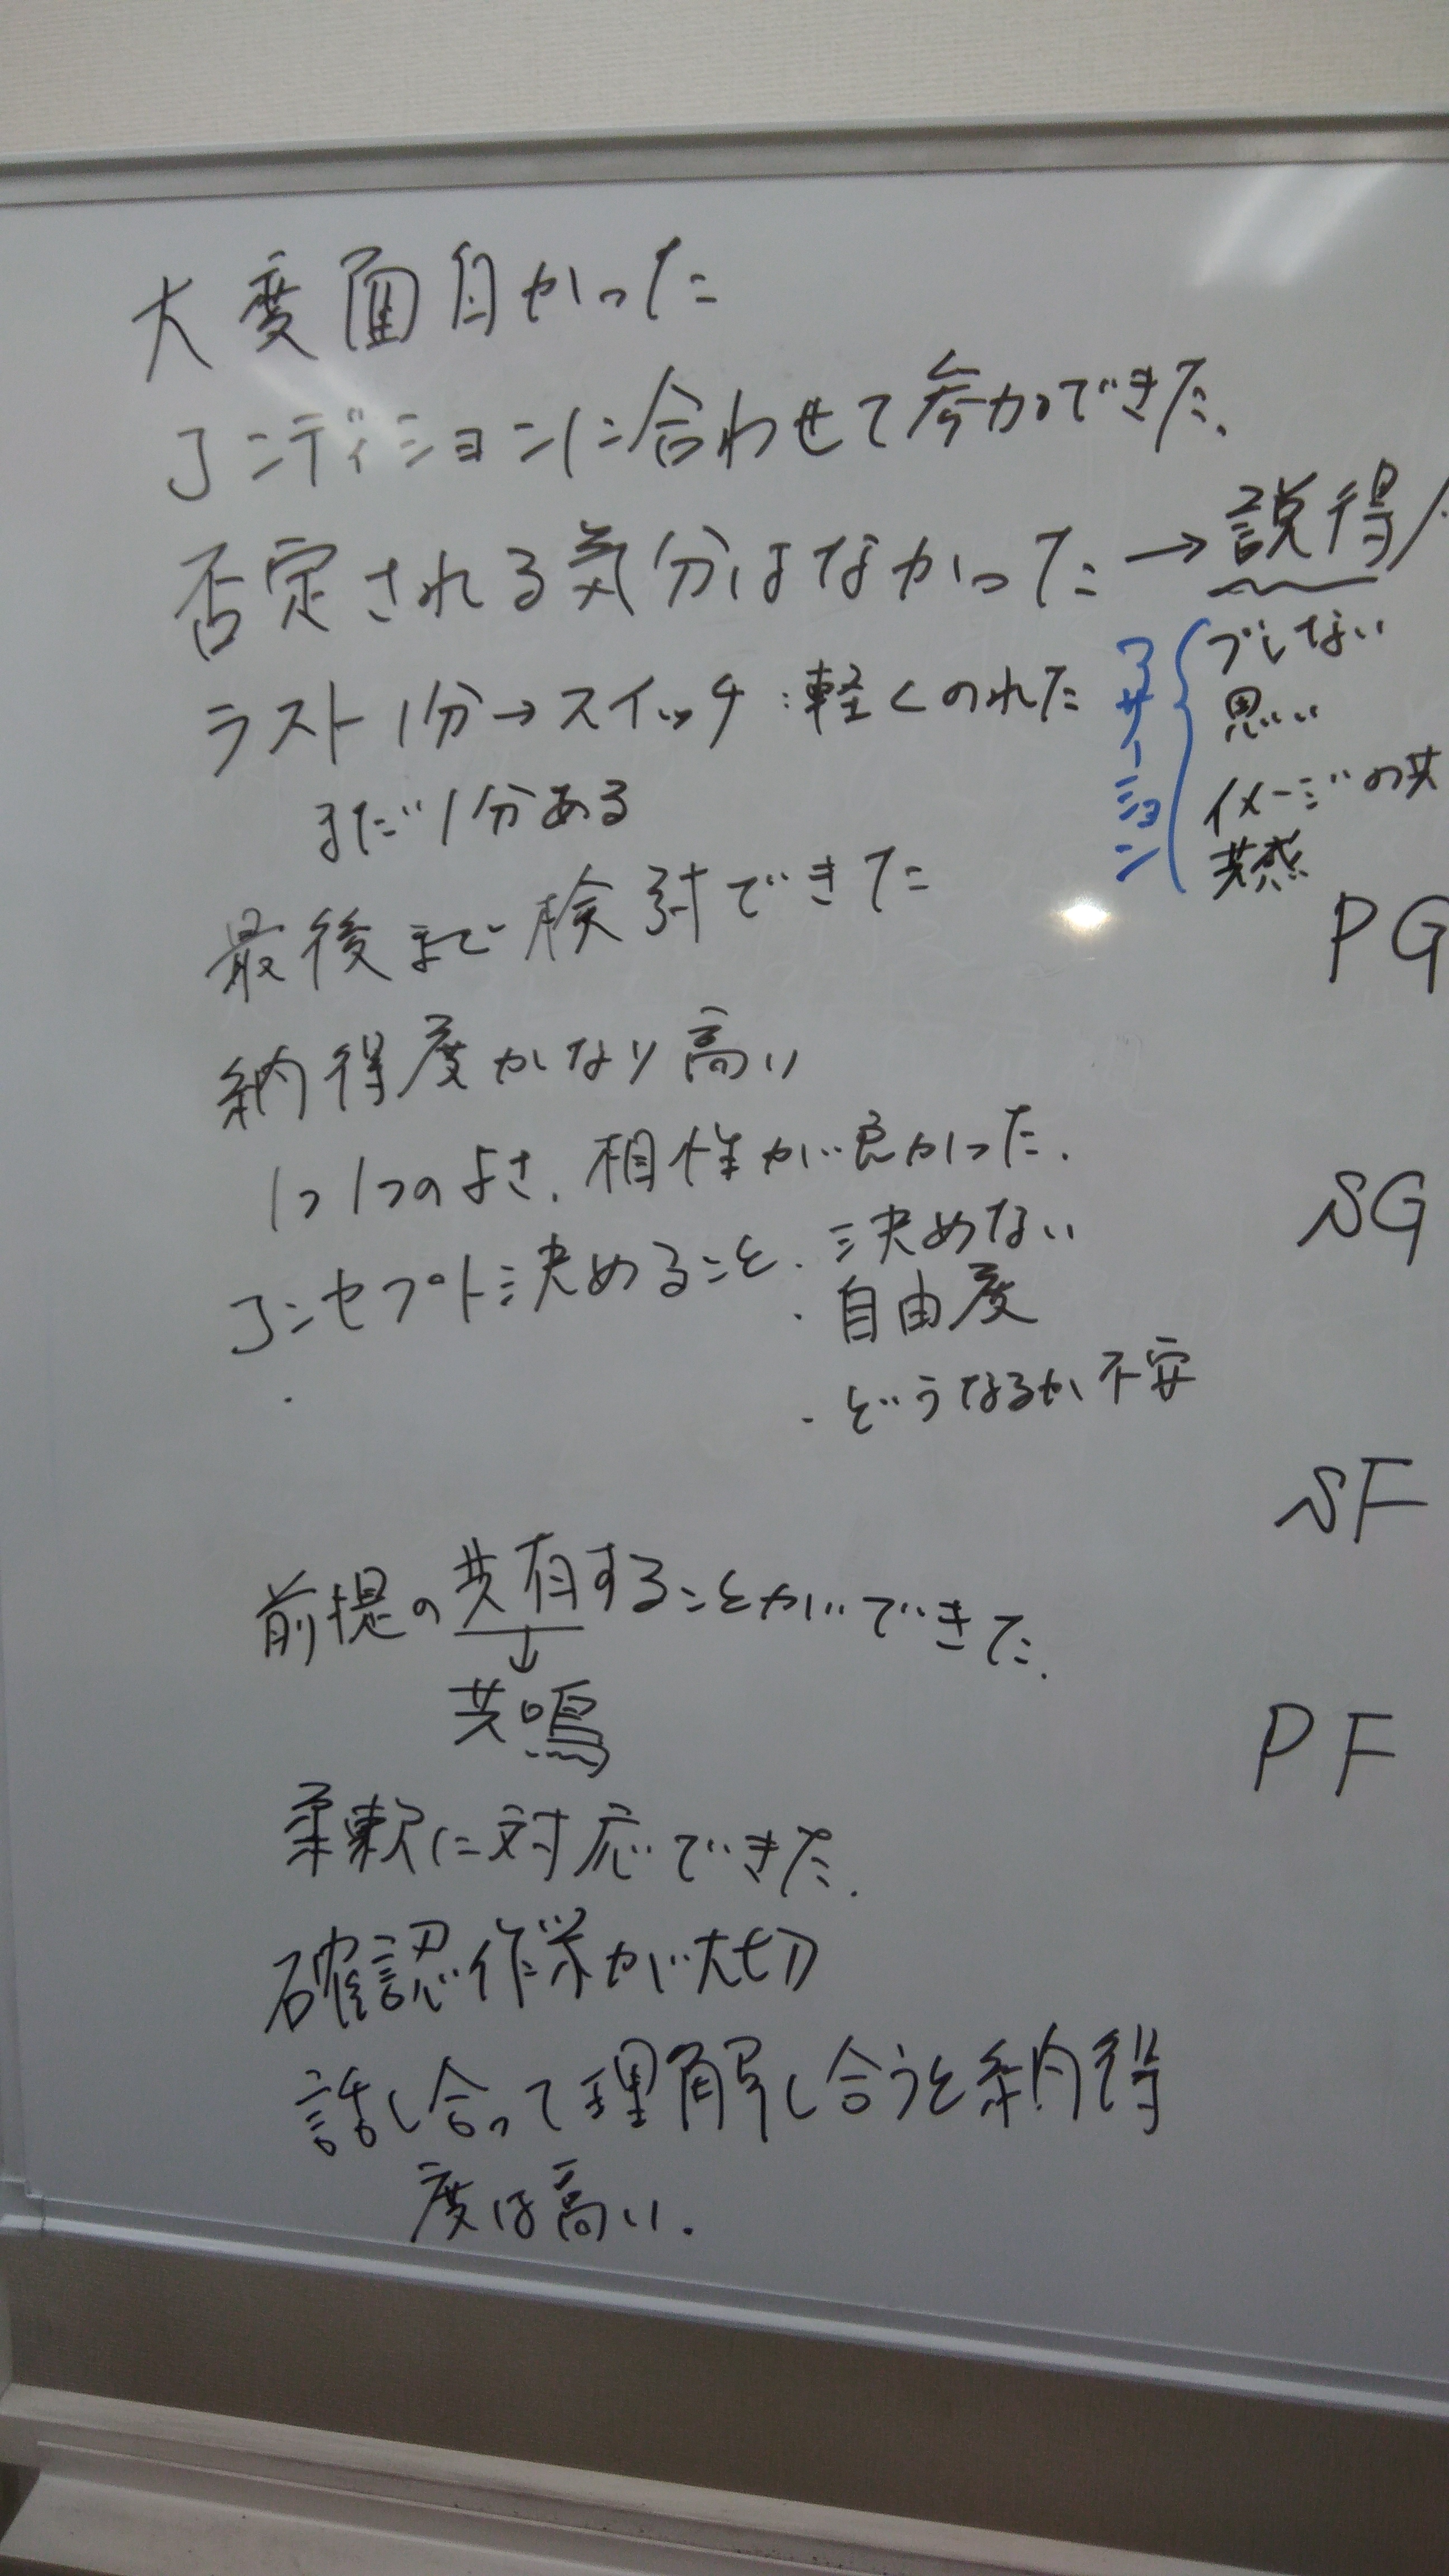 大変面白かった
コンディションに合わせて参加できた。
否定される気分はなかった → 説得
アサーション
ブレない
思い
イメージの共
共感
ラスト1分→スイッチ:軽くのれた
まだ1分ある
最後まで検討できた
納得度かなり高い
1つ1つのよさ、相性が良かった.
コンセプト:決めること. :決めない
・自由度
・どうなるか不安
前提の共有することができた.
↓
共鳴
柔軟に対応できた.
確認作業が大切
話し合って理解し合うと納得
度は高い.
PG
SG
SF
PF